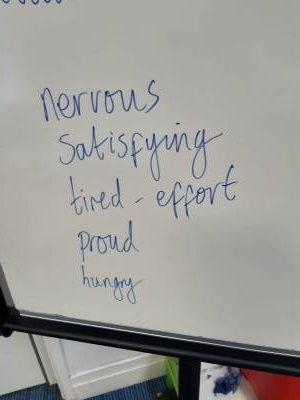 nervous
satisfying
tired - effort
proud
hungry